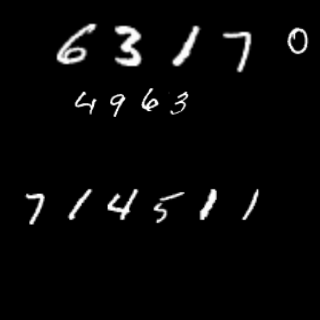 63170
4963
714511